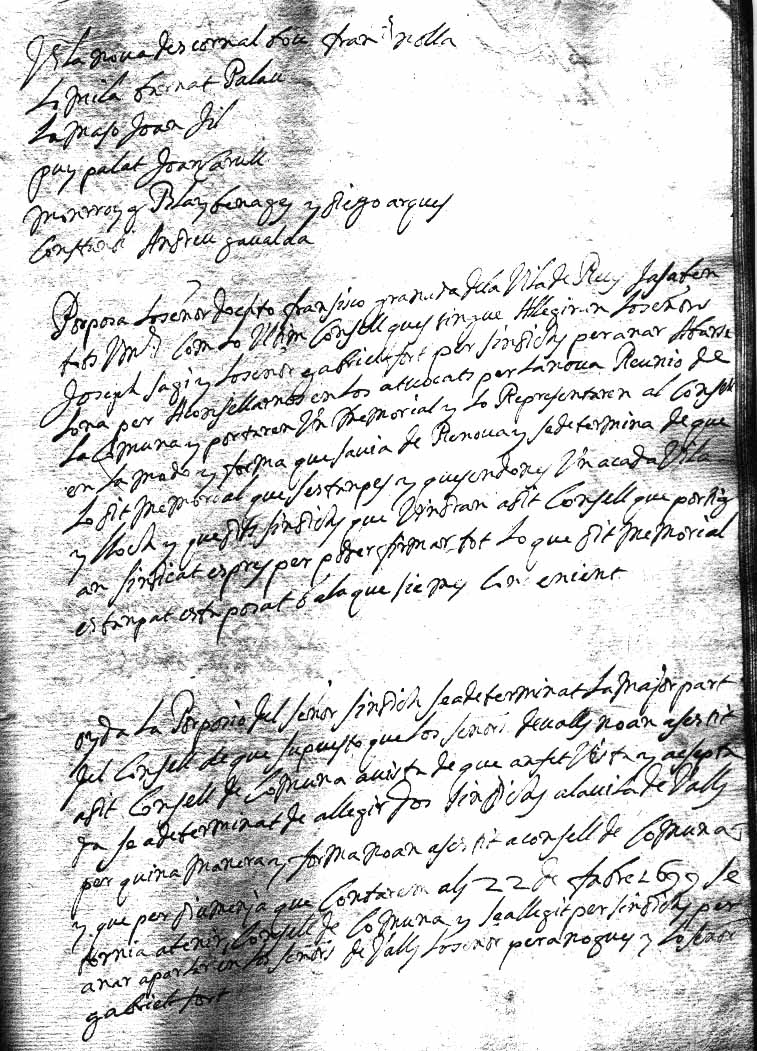 Vª la nova des cornal bou fran.ch nolla
Lo mila bernat Palau
La maso Joan Gil
puy palat Joan Carull
Monrroyg Blay benages y diego arques
Constanti Andreu gavalda
Porposa lo señor docto fransisco granida dela Vila de Reus Ja saben
tots Vms com lo Ultim Consell ques tingue Allegiren los señors
Joseph sagi y lo señor gabriel fort per sindichs per anar A barse
lona per Aconsellarnos en los atvocats per la nova Reunio de
la Comuna y portaren Un Memorial y lo Representaren al Consell
en la modo y forma que savia de Renovar y se determina de que
lo dit memorial que sestanpes y quesendones Un acada Vila
y lloch y que dits sindichs que Vindran a dit Consell que portig
an sindicat expres per poder firmar tot lo que dit memorial
estanpat esta posat o ala que sie mes Convenient
oyda la Porposio del señor sindich sea determinat la major part
del Consell de que supuesto que los señors de valls noan asistit
a dit Consell de Comuna a vista de que an fet Vista y asepta
da se a determinat de allegir dos sindichs ala vila de Valls
per quina manera y forma noan asistit a consell de Comuna
y que per diumenja que Contarem als 22 de fabre 1699 se
tornia a tenir Consell de Comuna y se allegit per sindichs per
anar a parlar en los señors de Valls lo señor pera nogues y lo señor
gabriel fort